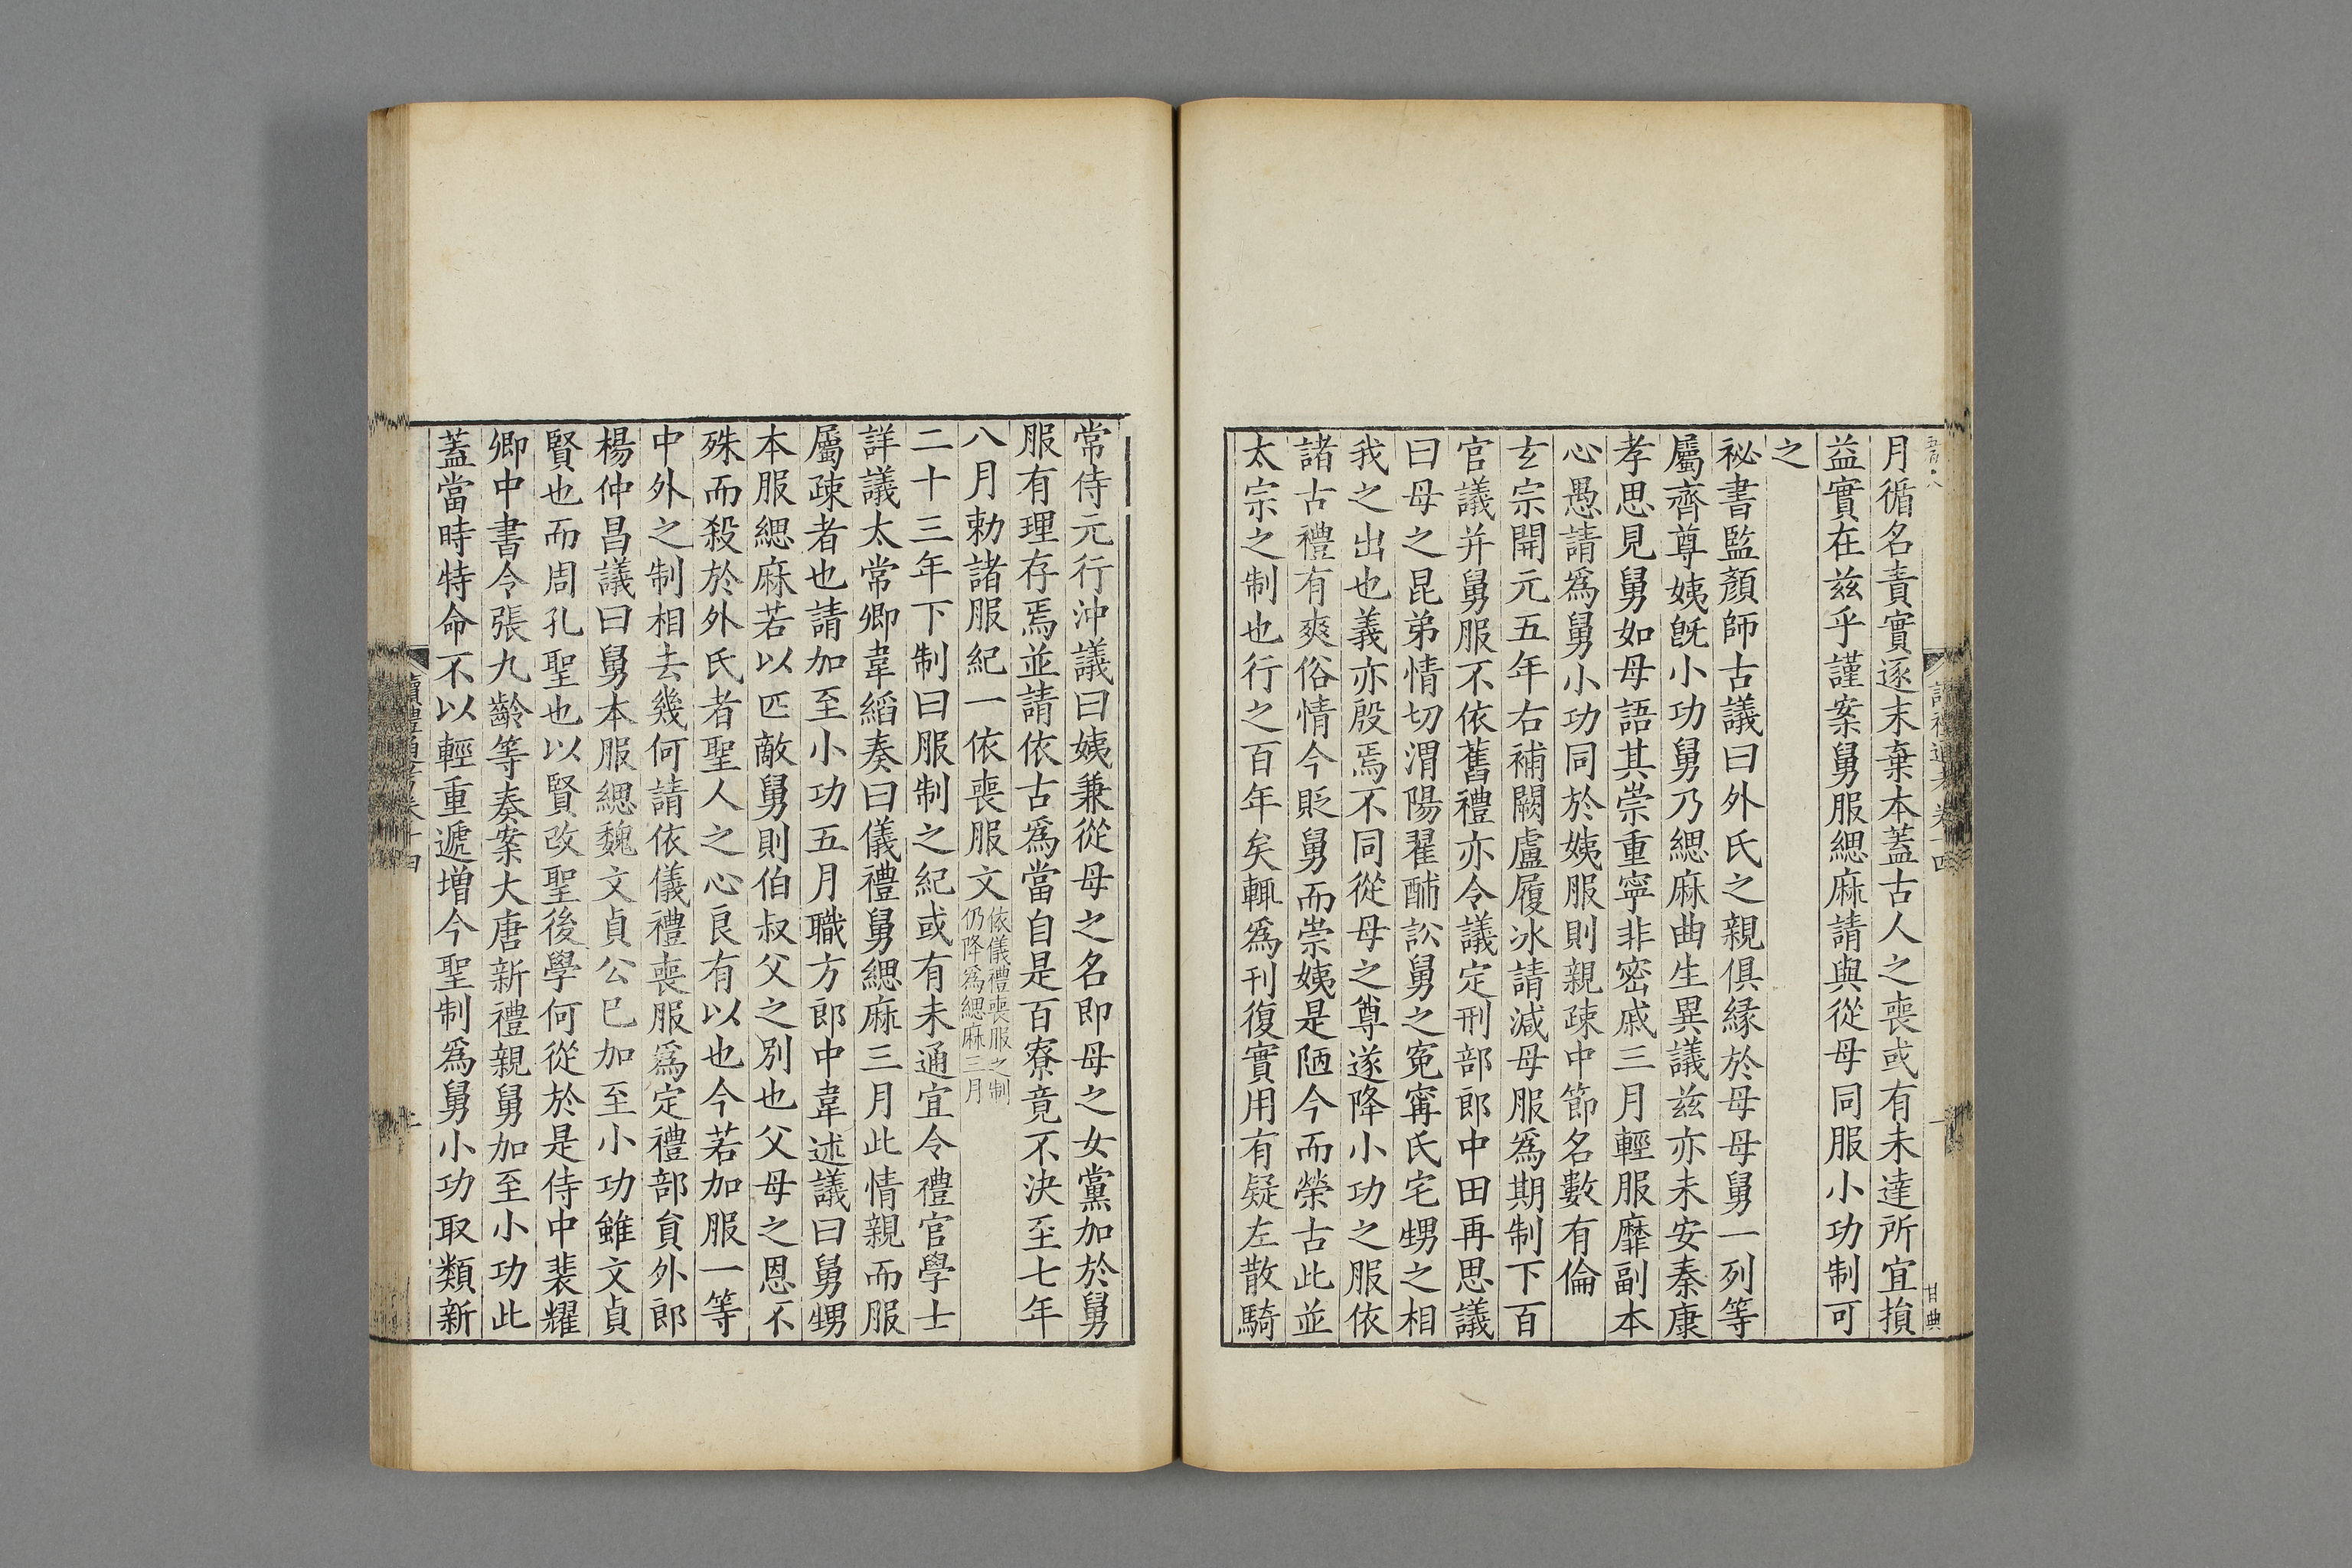 月循名責實逐末棄本蓋古人之喪或有未達所宜損
益實在茲乎謹案舅服緦麻請與從母同服小功制可
之
祕書監顏師古議曰外氏之親俱緣於母母舅一列等
屬齊尊姨旣小功舅乃緦麻曲生異議茲亦未安秦康
孝思見舅如母語其崇重寧非密戚三月輕服靡副本
心愚請爲舅小功同於姨服則親疎中節名數有倫
玄宗開元五年右補闕盧履冰請減母服爲期制下百
官議并舅服不依舊禮亦令議定刑部郎中田再思議
曰母之昆弟情切渭陽翟酺訟舅之寃甯氏宅甥之相
我之出也義亦殷焉不同從母之尊遂降小功之服依
諸古禮有爽俗情今貶舅而崇姨是陋今而榮古此並
太宗之制也行之百年矣輒爲刊復實用有疑左散騎
常侍元行沖議曰姨兼從母之名即母之女黨加於舅
服有理存焉並請依古爲當自是百寮竟不決至七年
八月勅諸服紀一依喪服文依儀禮喪服之制仍降爲緦麻三月
二十三年下制曰服制之紀或有未通宜令禮官學士
詳議太常卿韋縚奏曰儀禮舅緦麻三月此情親而服
屬疎者也請加至小功五月職方郎中韋述議曰舅甥
本服緦麻若以匹敵舅則伯叔父之別也父母之恩不
殊而殺於外氏者聖人之心良有以也今若加服一等
中外之制相去幾何請依儀禮喪服爲定禮部貟外郎
楊仲昌議曰舅本服緦魏文貞公已加至小功雖文貞
賢也而周孔聖也以賢改聖後學何從於是侍中裴耀
卿中書令張九齡等奏案大唐新禮親舅加至小功此
蓋當時特命不以輕重遞增今聖制爲舅小功取類新
讀禮通考卷十四